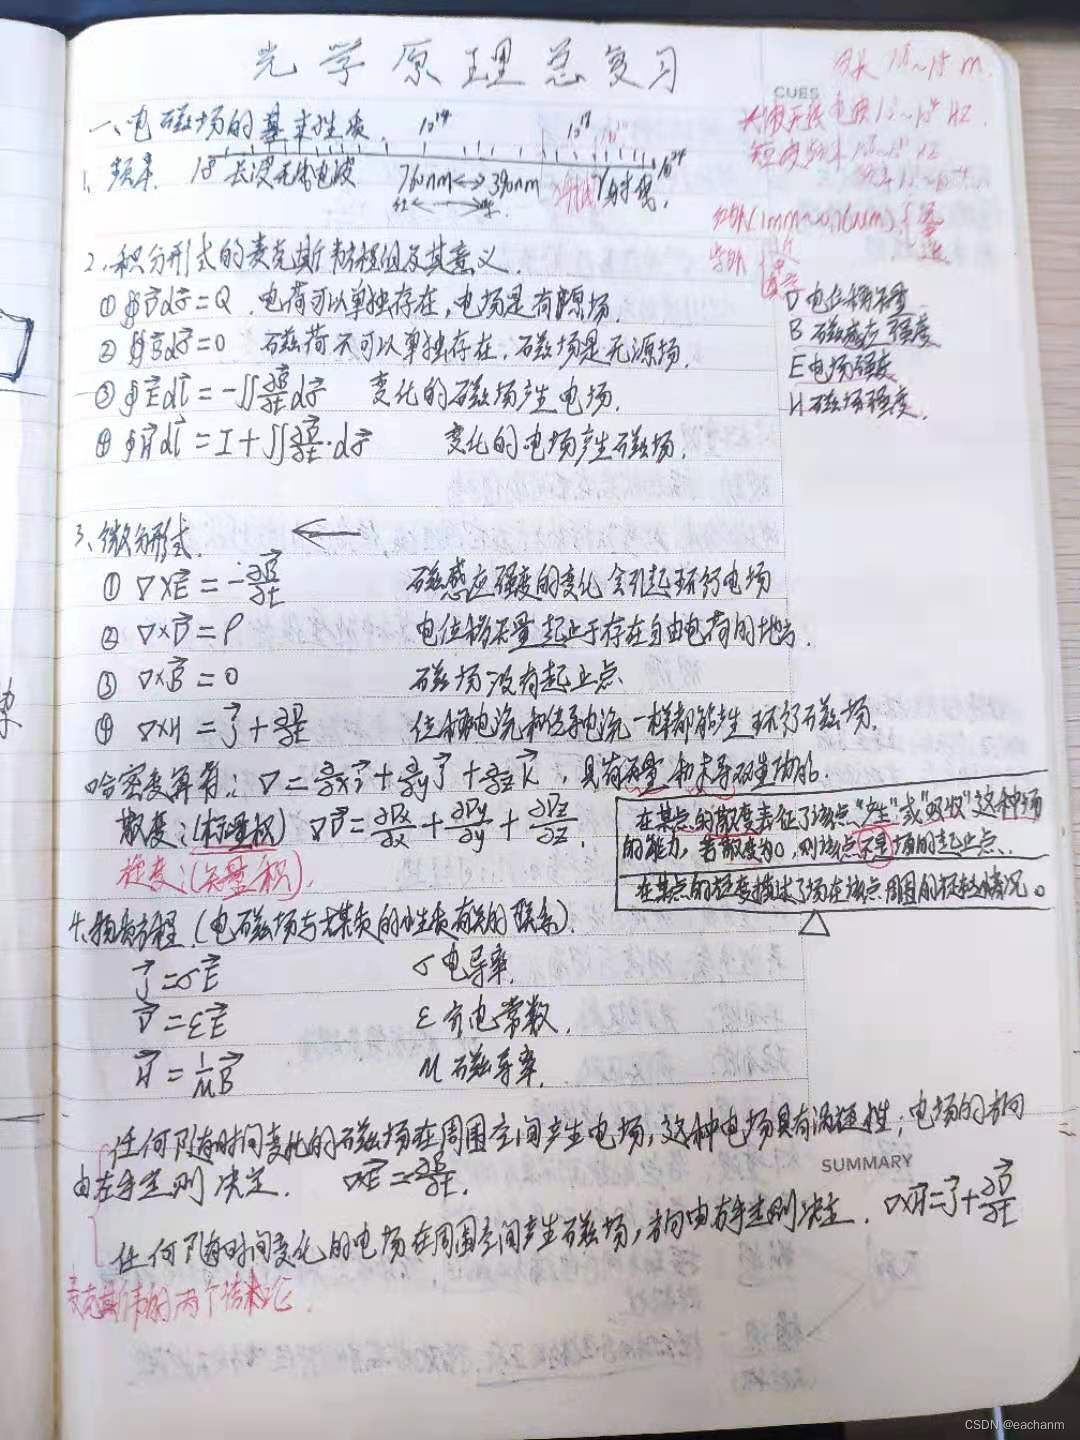 光学原理总复习
CUES
一、电磁场的基本性质.
1、频率. 长波无线电波 760nm<->390nm γ射线.
2、积分形式的麦克斯韦方程组及其意义.
① ∯D⃗dσ⃗=Q. 电荷可以单独存在,电场是有源场.
② ∯B⃗dσ⃗=0 磁荷不可以单独存在.磁场是无源场.
③ ∮E⃗dl⃗=-∬∂B⃗/∂t dσ⃗ 变化的磁场产生电场.
④ ∮H⃗dl⃗=I+∬∂D⃗/∂t·dσ⃗ 变化的电场产生磁场.
D 电位移矢量
B 磁感应强度
E 电场强度
H 磁场强度.
3、微分形式.
① ▽×E⃗=-∂B⃗/∂t 磁感应强度的变化会引起环行电场
② ▽×D⃗=ρ 电位移矢量起止于存在自由电荷的地方.
③ ▽×B⃗=0 磁场没有起止点.
④ ▽×H=j⃗+∂D⃗/∂t 位移电流和传导电流一样都能产生环行磁场.
哈密度算符: ▽=∂/∂x i⃗+∂/∂y j⃗+∂/∂z k⃗,具有矢量和求导双重功能.
散度:(标量积) ▽D⃗=∂Dx/∂x+∂Dy/∂y+∂Dz/∂z.
旋度:(矢量积).
在某点的散度表征了该点"产生"或"吸收"这种场
的能力,若散度为0,则该点不是场的起止点.
在某点的旋度描述了场在该点周围的旋转情况。
4、物质方程.(电磁场与媒质的性质有关的联系).
j⃗=σE⃗ σ电导率.
D⃗=εE⃗ ε介电常数.
H⃗=1/μ B⃗ μ磁导率.
任何随时间变化的磁场在周围空间产生电场,这种电场具有涡旋性;电场的方向
由左手定则决定. ▽×E⃗=-∂B⃗/∂t.
SUMMARY
任何随时间变化的电场在周围空间产生磁场,方向由右手定则决定. ▽×H⃗=j⃗+∂D⃗/∂t
麦克斯韦的两个结论.
CSDN @eachanm